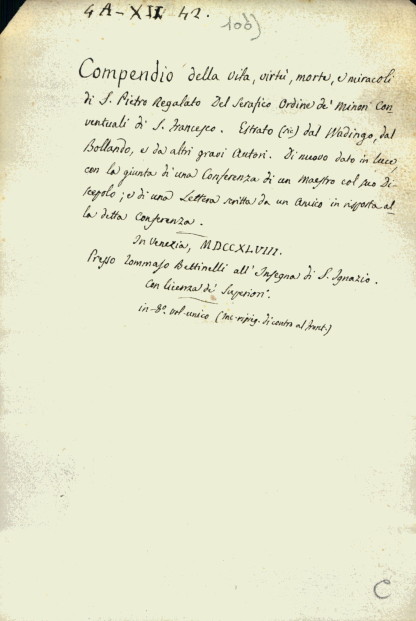 4A-XII 42.
106)
Compendio della vita, virtù, morte, e miracoli
di S. Pietro Regalato Del Serafico Ordine de' Minori Con
ventuali di S. Francesco. Estrato (sic) dal Wadingo, dal
Bollando, e da altri gravi Autori. Di nuovo dato in luce
con la giunta di una Conferenza di un Maestro col suo Di-
scepolo; e di una Lettera scritta da un Amico in risposta al-
la detta Conferenza.
In Venezia, MDCCXLVIII.
Presso Tommaso Bettinelli all'Insegna di S. Ignazio.
Con licenza de' Superiori.
in-8º. Vol. unico (inc. ripieg. di contro al front.)
C